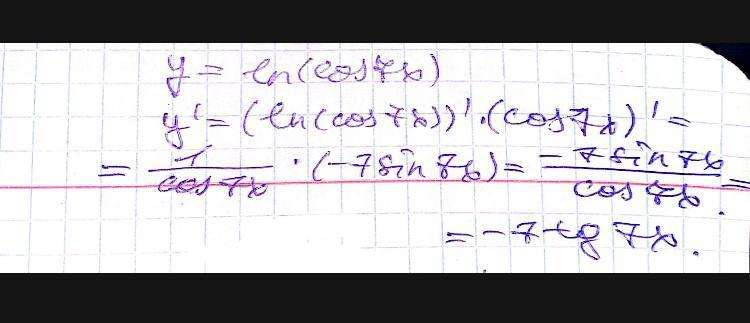 y = ln(cos7x)
y' = (ln(cos7x))' · (cos7x)' =
= 1/cos7x · (-7sin7x) = -7sin7x/cos7x =
= -7tg7x.